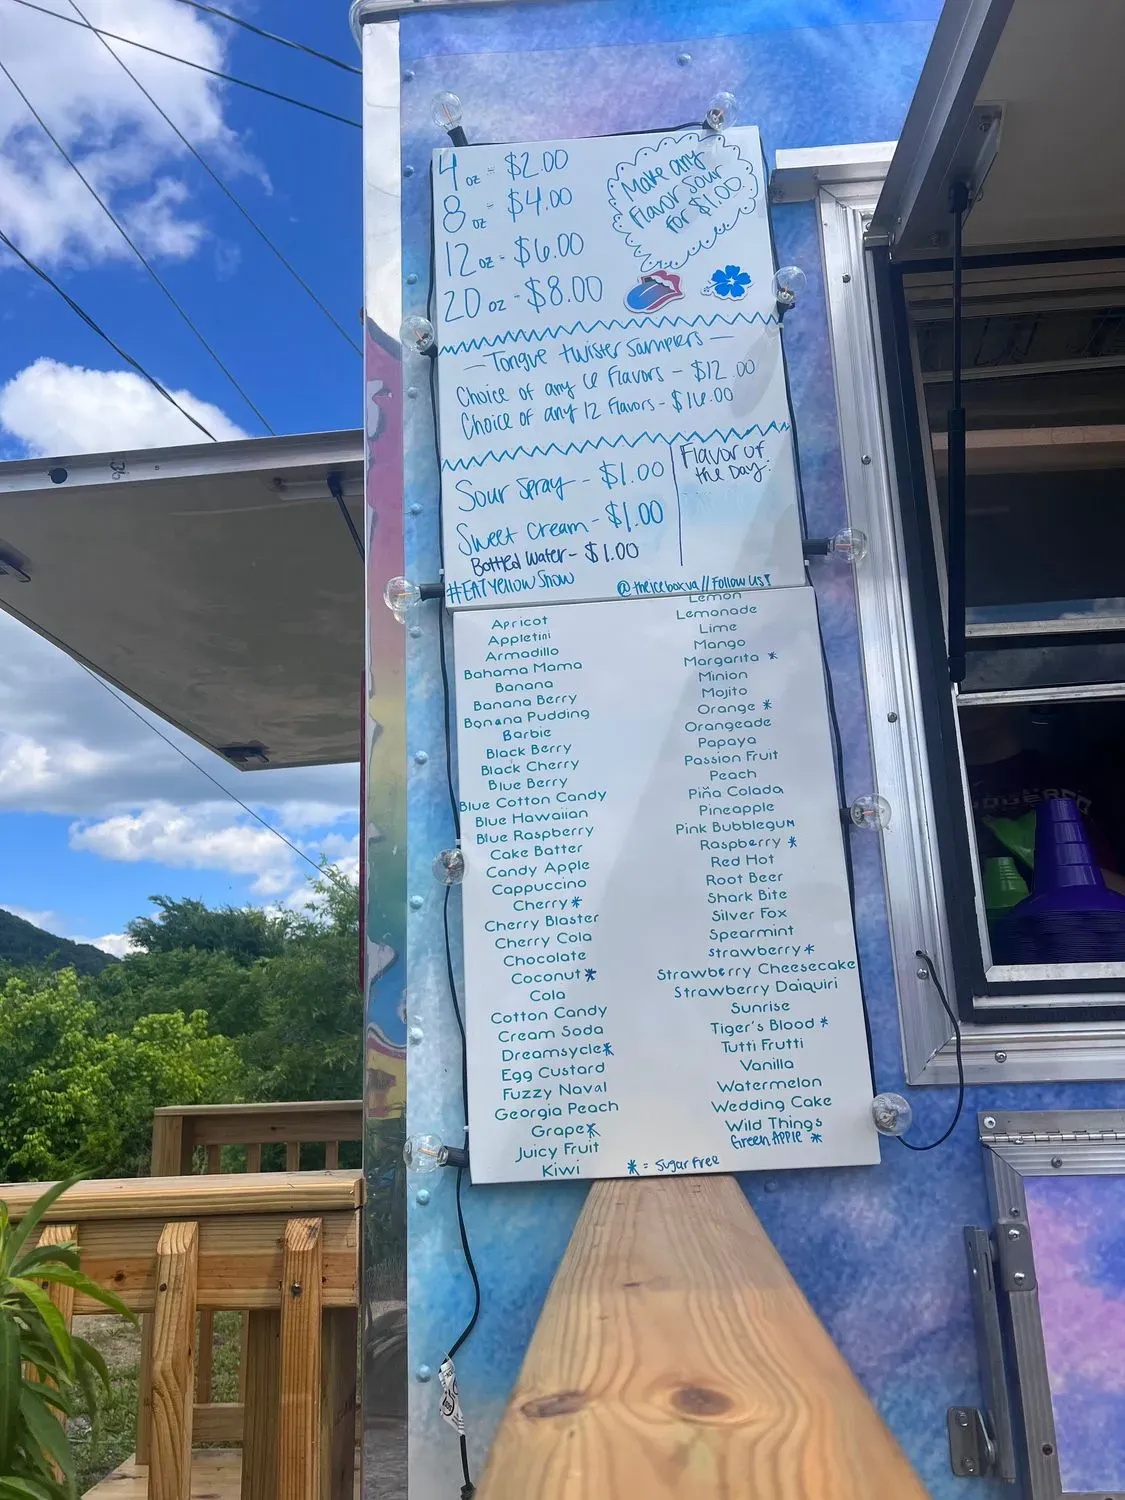 4 oz - $2.00
8 oz - $4.00
12 oz - $6.00
20 oz - $8.00
Make any
Flavor Sour
for $1.00
— Tongue twister Samplers —
Choice of any 6 Flavors - $12.00
Choice of any 12 Flavors - $16.00
Sour Spray - - $1.00
Sweet Cream - $1.00
Bottled Water - $1.00
Flavor of
the Day:
#EATYellowSnow
@theiceboxva // Follow Us!
Apricot
Appletini
Armadillo
Bahama Mama
Banana
Banana Berry
Banana Pudding
Barbie
Black Berry
Black Cherry
Blue Berry
Blue Cotton Candy
Blue Hawaiian
Blue Raspberry
Cake Batter
Candy Apple
Cappuccino
Cherry *
Cherry Blaster
Cherry Cola
Chocolate
Coconut *
Cola
Cotton Candy
Cream Soda
Dreamsycle *
Egg Custard
Fuzzy Naval
Georgia Peach
Grape *
Juicy Fruit
Kiwi
Lemon
Lemonade
Lime
Mango
Margarita *
Minion
Mojito
Orange *
Orangeade
Papaya
Passion Fruit
Peach
Piña Colada
Pineapple
Pink Bubblegum
Raspberry *
Red Hot
Root Beer
Shark Bite
Silver Fox
Spearmint
Strawberry *
Strawberry Cheesecake
Strawberry Daiquiri
Sunrise
Tiger's Blood *
Tutti Frutti
Vanilla
Watermelon
Wedding Cake
Wild Things
Green Apple *
* = Sugar Free